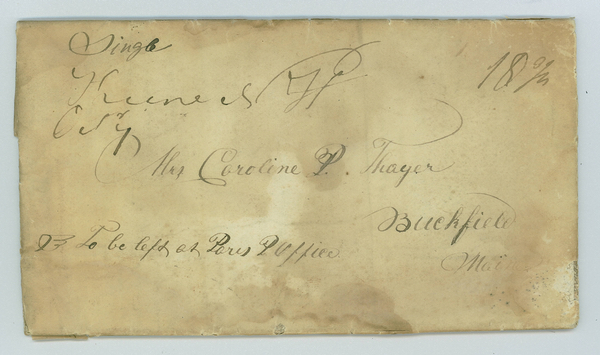 Single
Keene N H
18 3/4
Mrs Caroline P. Thayer
Buckfield
To be left at Paris P Office
Maine